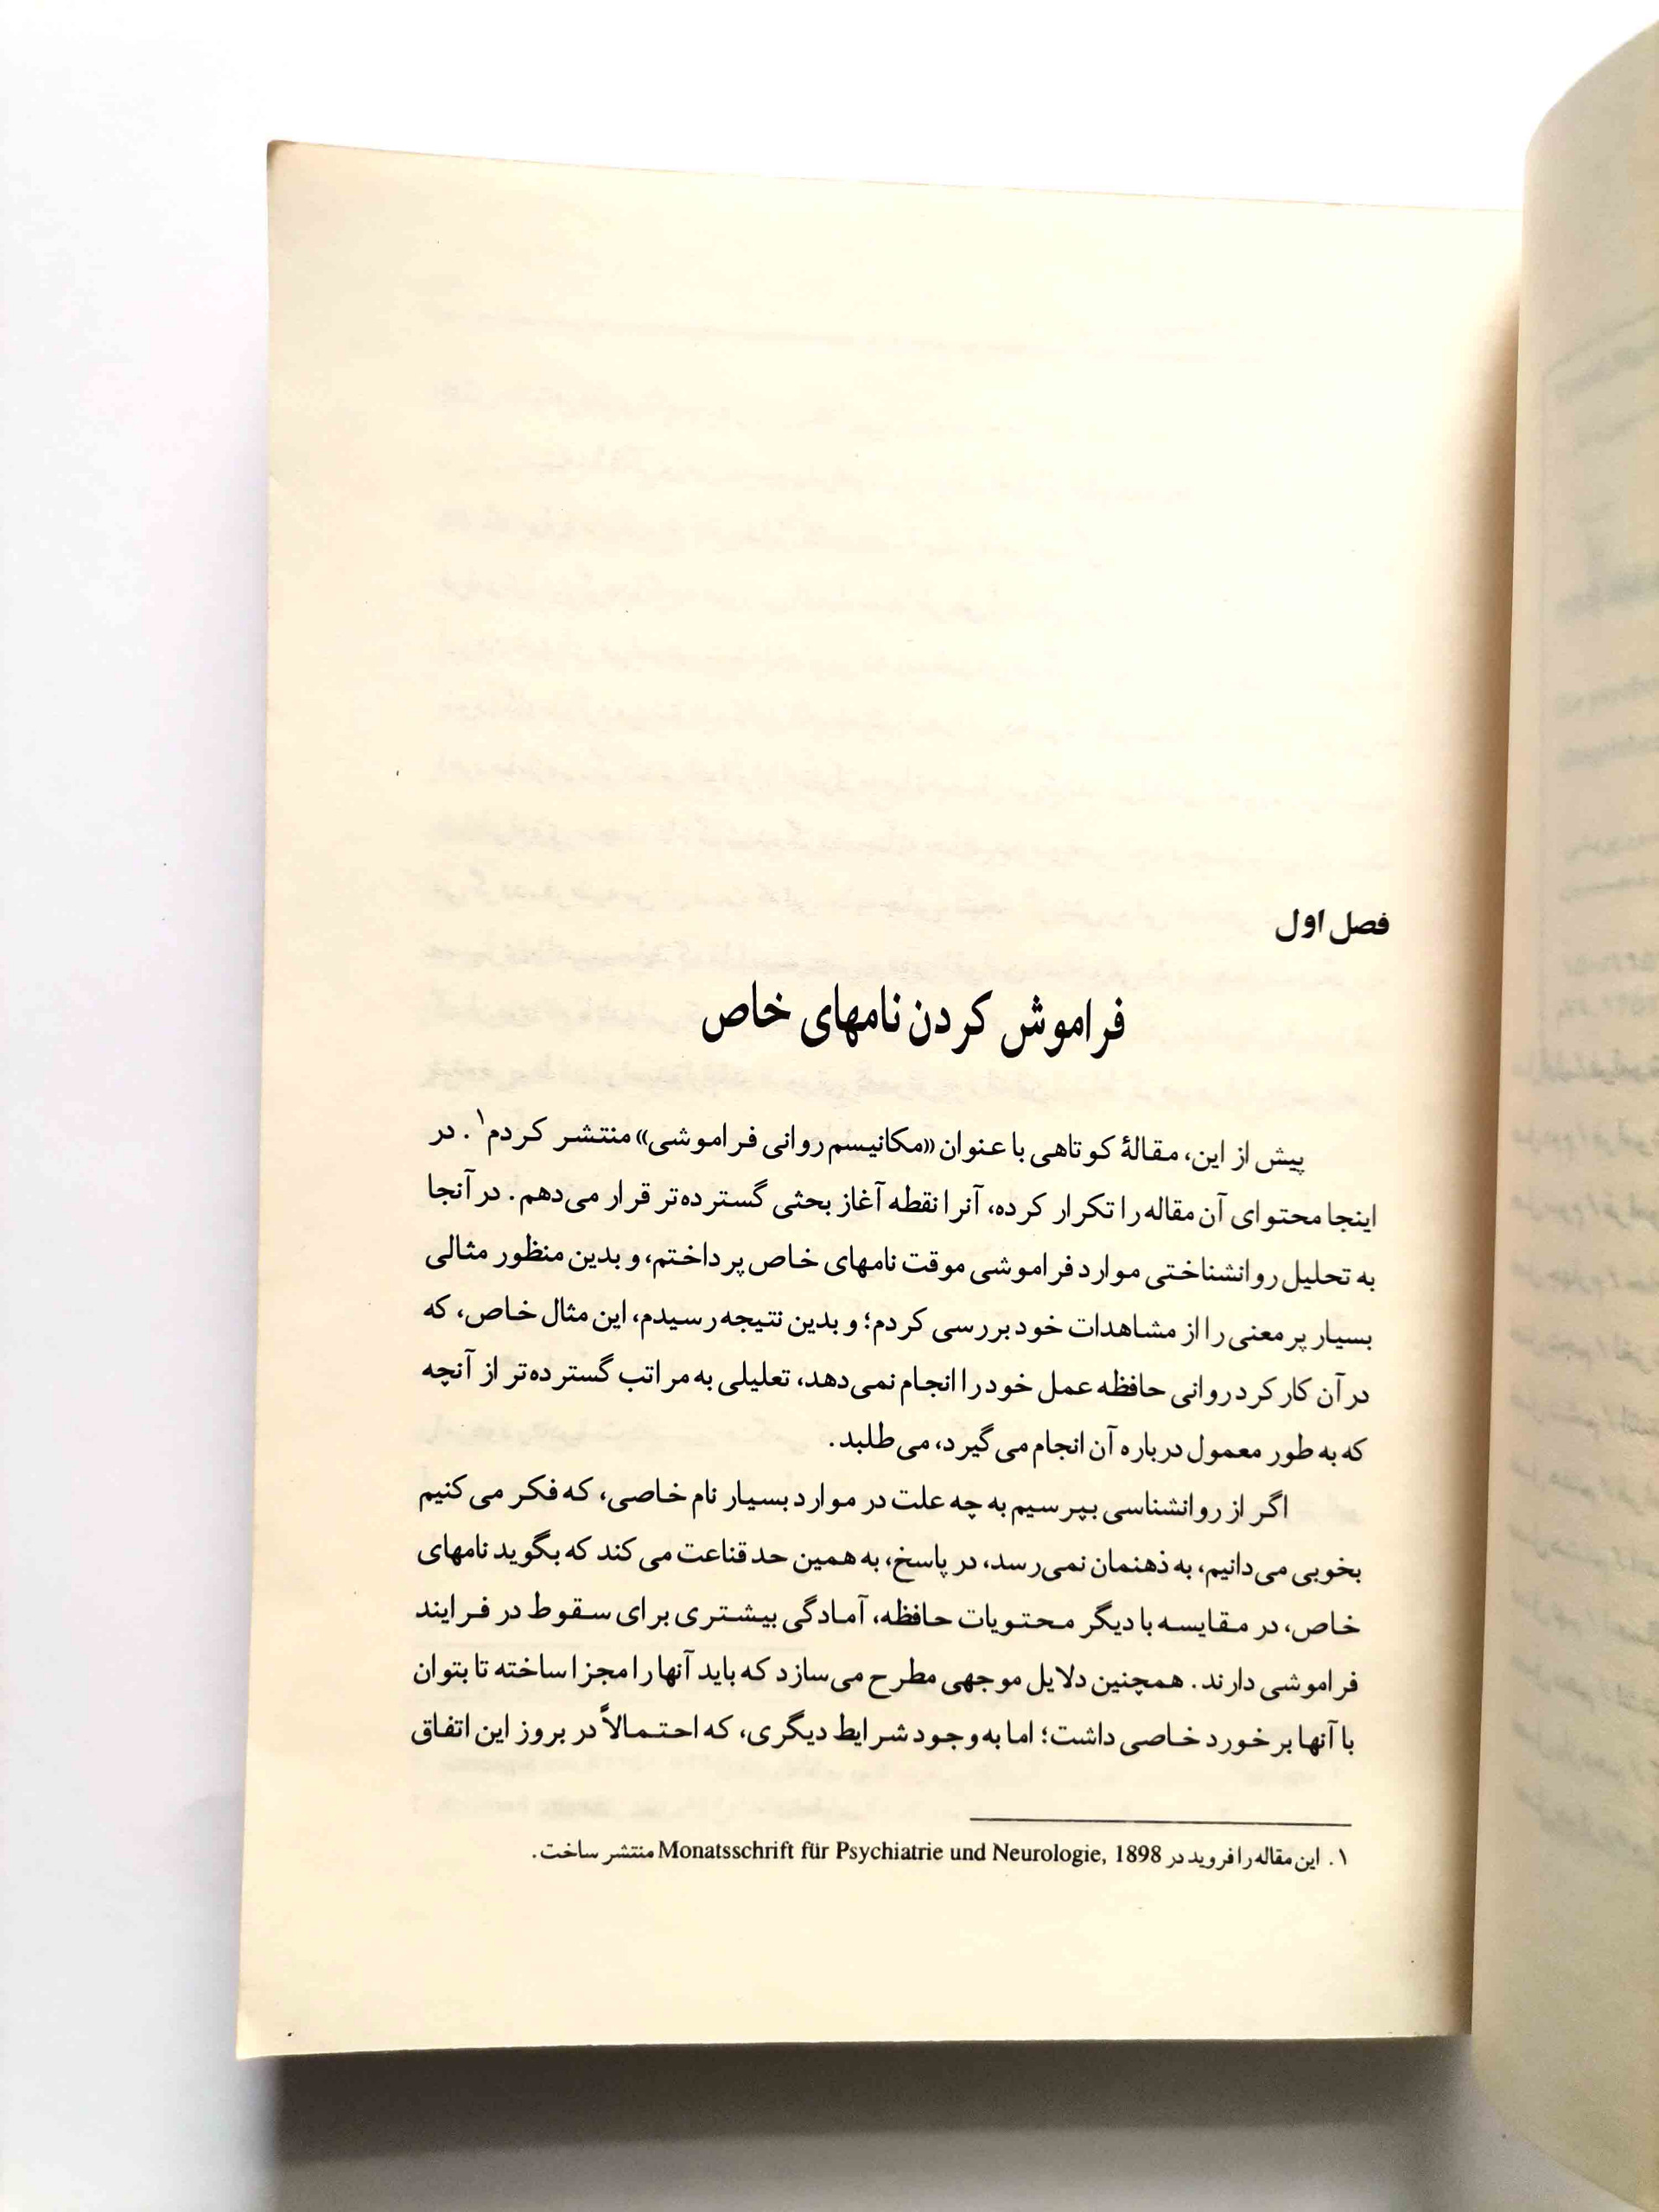 فصل اول
فراموش کردن نامهای خاص
پیش از این، مقالهٔ کوتاهی با عنوان «مکانیسم روانی فراموشی» منتشر کردم۱. در
اینجا محتوای آن مقاله را تکرار کرده، آنرا نقطه آغاز بحثی گسترده‌تر قرار می‌دهم. در آنجا
به تحلیل روانشناختی موارد فراموشی موقت نامهای خاص پرداختم، و بدین منظور مثالی
بسیار پر معنی را از مشاهدات خود بررسی کردم؛ و بدین نتیجه رسیدم، این مثال خاص، که
در آن کارکرد روانی حافظه عمل خود را انجام نمی‌دهد، تعلیلی به مراتب گسترده‌تر از آنچه
که به طور معمول درباره آن انجام می‌گیرد، می‌طلبد.
اگر از روانشناسی بپرسیم به چه علت در موارد بسیار نام خاصی، که فکر می‌کنیم
بخوبی می‌دانیم، به ذهنمان نمی‌رسد، در پاسخ، به همین حد قناعت می‌کند که بگوید نامهای
خاص، در مقایسه با دیگر محتویات حافظه، آمادگی بیشتری برای سقوط در فرایند
فراموشی دارند. همچنین دلایل موجهی مطرح می‌سازد که باید آنها را مجزا ساخته تا بتوان
با آنها برخورد خاصی داشت؛ اما به وجود شرایط دیگری، که احتمالاً در بروز این اتفاق
۱. این مقاله را فروید در Monatsschrift für Psychiatrie und Neurologie, 1898 منتشر ساخت.